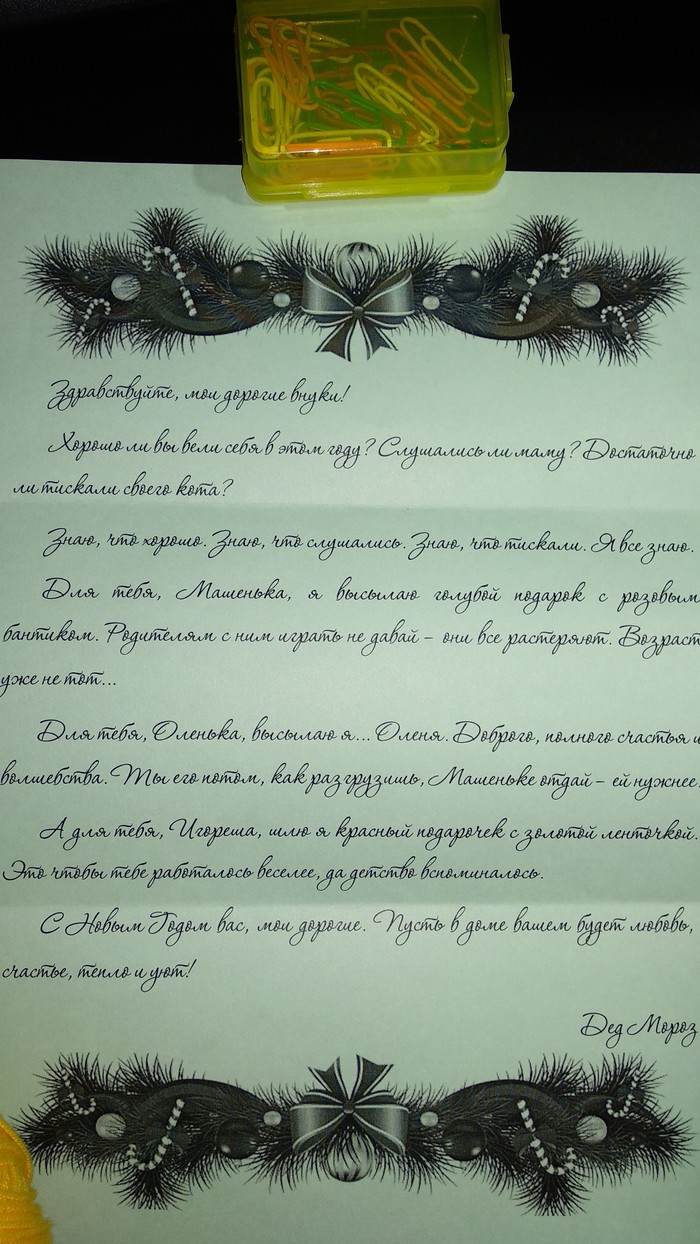 Здравствуйте, мои дорогие внуки!
Хорошо ли вы вели себя в этом году? Слушались ли маму? Достаточно
ли тискали своего кота?
Знаю, что хорошо. Знаю, что слушались. Знаю, что тискали. Я все знаю.
Для тебя, Машенька, я высылаю голубой подарок с розовым
бантиком. Родителям с ним играть не давай – они все растеряют. Возраст
уже не тот...
Для тебя, Оленька, высылаю я... Оленя. Доброго, полного счастья и
волшебства. Ты его потом, как разгрузишь, Машеньке отдай – ей нужнее.
А для тебя, Игореша, шлю я красный подарочек с золотой ленточкой.
Это чтобы тебе работалось веселее, да детство вспоминалось.
С Новым Годом вас, мои дорогие. Пусть в доме вашем будет любовь,
счастье, тепло и уют!
Дед Мороз